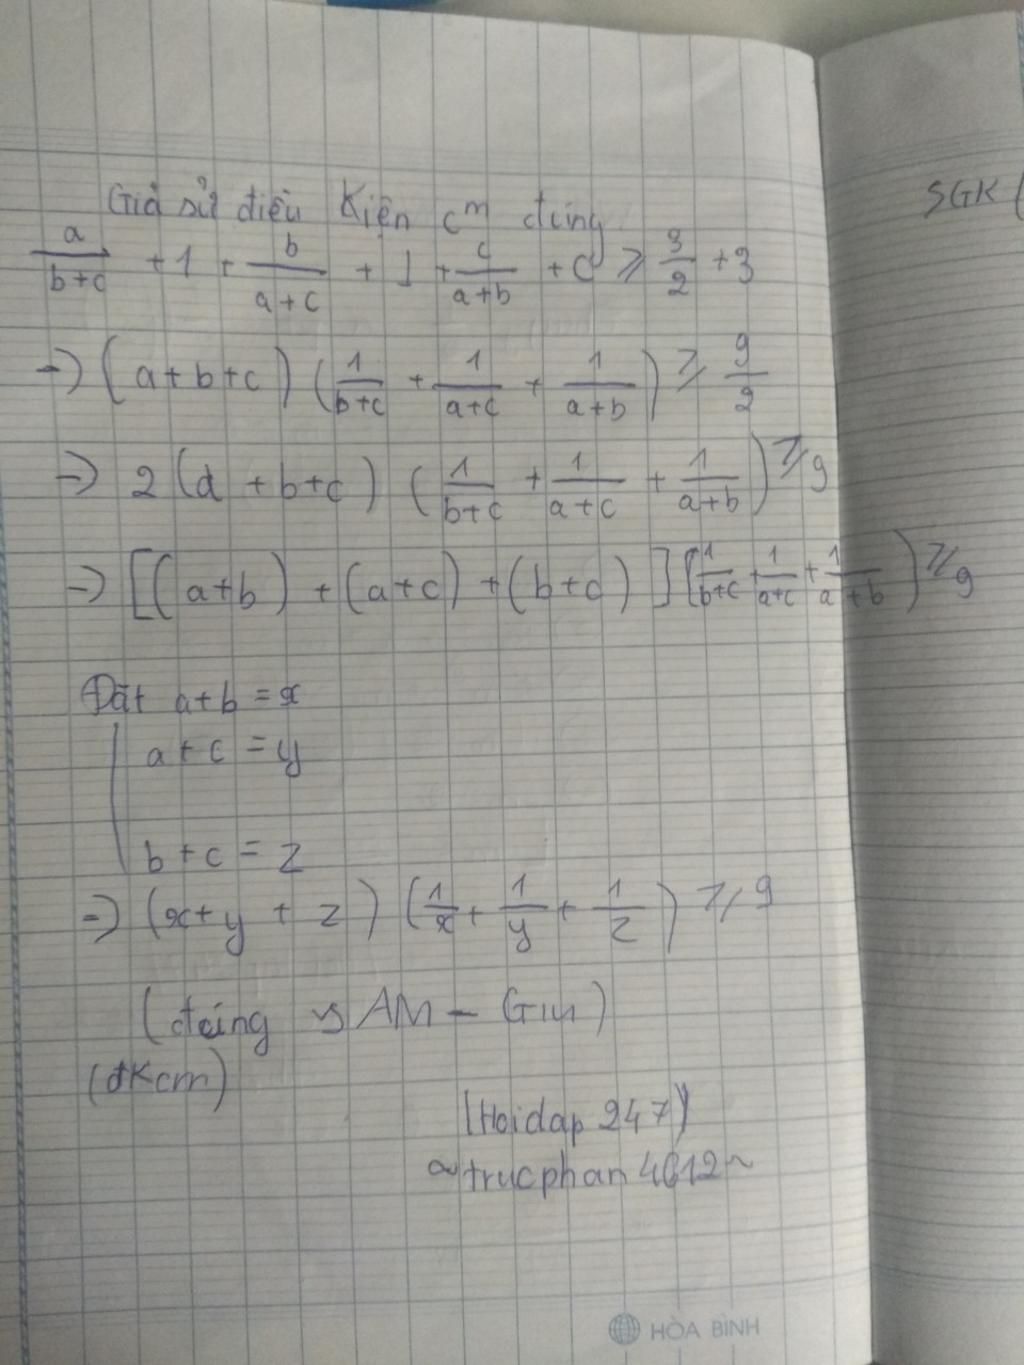 SGK (
Giả sử điều kiện cm đúng
a/(b+c) + 1 + b/(a+c) + 1 + c/(a+b) + c ≥ 3/2 + 3
→) (a+b+c) (1/(b+c) + 1/(a+c) + 1/(a+b)) ≥ 9/2
=) 2 (a + b+c) (1/(b+c) + 1/(a+c) + 1/(a+b)) ≥ 9
=) [(a+b) + (a+c) + (b+c)] [1/(b+c) + 1/(a+c) + 1/(a+b)) ≥ 9
Đặt a+b = x
a+c = y
b+c = z
=) (x+y + z) (1/x + 1/y + 1/z) ≥ 9
(đúng vs AM – GM)
(đkcm)
(Hoidap 247)
~trucphan4612~
HÒA BÌNH